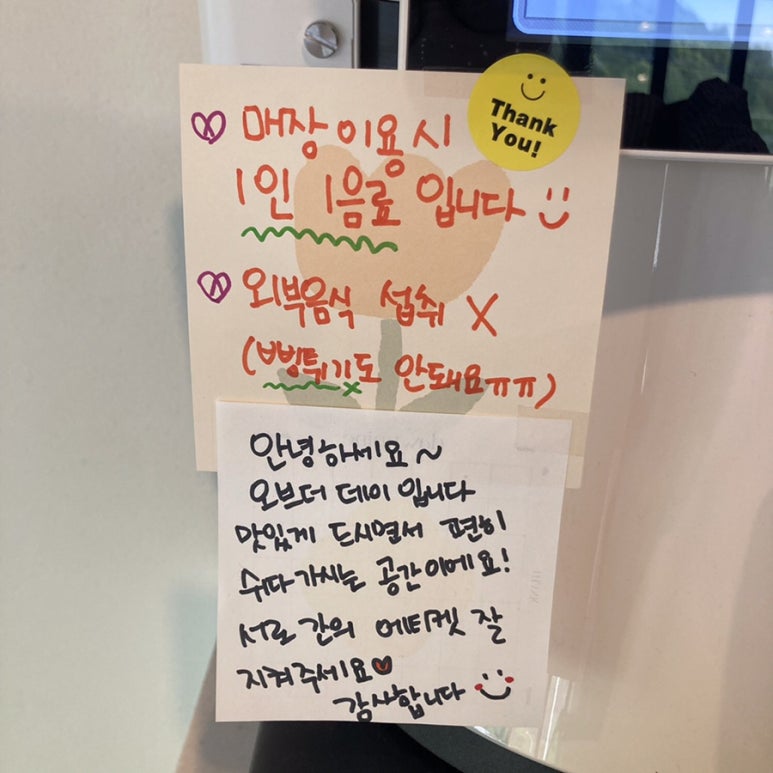 Thank
You!
매장 이용 시
1인 1음료 입니다
외부음식 섭취 X
(뻥튀기도 안돼요ㅠㅠ)
안녕하세요~
오브더 데이 입니다
맛있게 드시면서 편히
쉬다 가시는 공간이에요!
서로 간의 에티켓 잘
지켜주세요
감사합니다